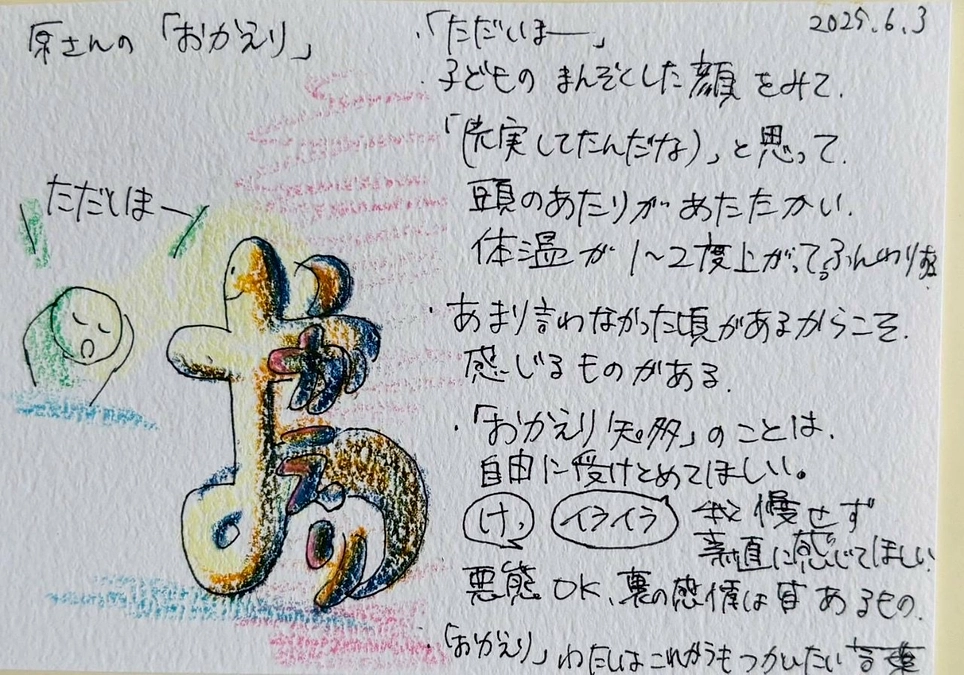 原さんの「おかえり」
2025.6.3
ただいまー
おかえり
・「ただいまー」
・子どものまんぞくした顔をみて、
「(充実してたんだな)」と思って、
頭のあたりがあたたかい。
体温が1~2度上がって。ふんわり
・あまり言わなかった頃があるからこそ、
感じるものがある。
・「おかえり知多」のことは、
自由に受けとめてほしい。
け、 イライラ 我慢せず
素直に感じてほしい
悪態OK、裏の感情は皆あるもの。
「おかえり」わたしはこれからもつかいたい言葉